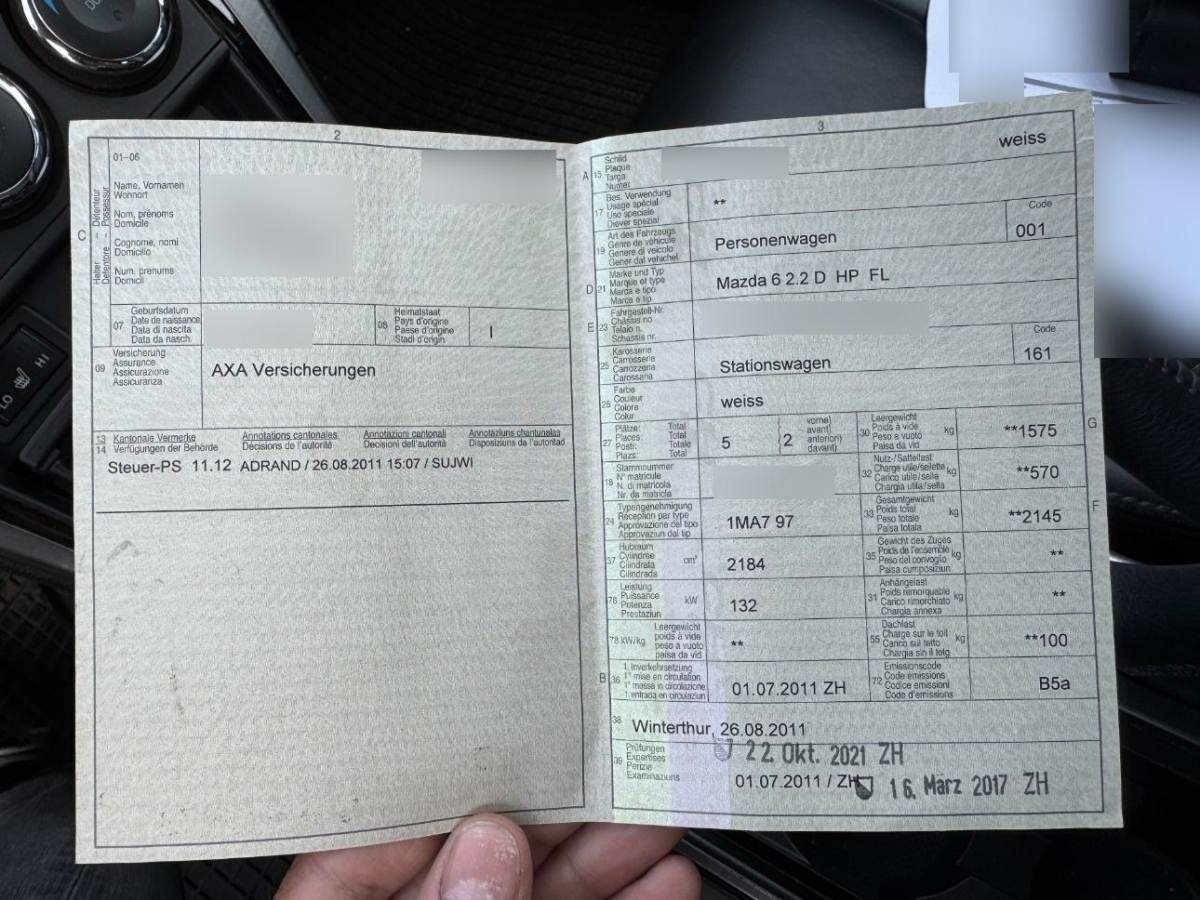 2
01-06
C
Halter – Détenteur
Detentore – Possessur
Name, Vornamen
Wohnort
Nom, prénoms
Domicile
Cognome, nomi
Domicilio
Num, prenums
Domicil
07
Geburtsdatum
Date de naissance
Data di nascita
Data da nasch.
08
Heimatstaat
Pays d'origine
Paese d'origine
Stadi d'origin
I
09
Versicherung
Assurance
Assicurazione
Assicuranza
AXA Versicherungen
13 Kantonale Vermerke Annotations cantonales Annotazioni cantonali Annotaziuns chantunalas
14 Verfügungen der Behörde Décisions de l'autorité Decisioni dell'autorità Disposiziuns da l'autoritad
Steuer-PS 11.12 ADRAND / 26.08.2011 15:07 / SUJWI
3
A 15
Schild
Plaque
Targa
Numer
weiss
17
Bes. Verwendung
Usage spécial
Uso speciale
Diever spezial
**
19
Art des Fahrzeugs
Genre de véhicule
Genere di veicolo
Gener dal vehichel
Personenwagen
Code
001
D 21
Marke und Typ
Marque et type
Marca e tipo
Marca e tip
Mazda 6 2.2 D HP FL
E 23
Fahrgestell-Nr.
Châssis no
Telaio n.
Schassis nr.
25
Karosserie
Carrosserie
Carrozzeria
Carossaria
Stationswagen
Code
161
26
Farbe
Couleur
Colore
Colur
weiss
27
Plätze: Total
Places: Total
Posti: Totale
Plazs: Total
5
2
vorne)
avant)
anteriori)
davant)
G
30
Leergewicht
Poids à vide
Peso a vuoto
Paisa da vid
kg
**1575
18
Stammnummer
N° matricule
N. di matricola
Nr. da matricla
32
Nutz-/Sattellast
Charge utile/sellette
Carico utile/sella
Chargia utila/sella
kg
**570
24
Typengenehmigung
Réception par type
Approvazione del tipo
Approvaziun dal tip
1MA7 97
F
33
Gesamtgewicht
Poids total
Peso totale
Paisa totala
kg
**2145
37
Hubraum
Cylindrée
Cilindrata
Cilindrada
cm³
2184
35
Gewicht des Zuges
Poids de l'ensemble
Peso del convoglio
Paisa cumposiziun
kg
**
76
Leistung
Puissance
Potenza
Prestaziun
kW
132
31
Anhängelast
Poids remorquable
Carico rimorchiato
Chargia annexa
kg
**
78 kW/kg
Leergewicht
poids à vide
peso a vuoto
paisa da vid
**
55
Dachlast
Charge sur le toit
Carico sul tetto
Chargia sin il tetg
kg
**100
B 36
1. Inverkehrsetzung
1re mise en circulation
1a messa in circolazione
1. entrada en circulaziun
01.07.2011 ZH
72
Emissionscode
Code émissions
Codice emissioni
Code d'emissiuns
B5a
38
Winterthur, 26.08.2011
39
Prüfungen
Expertises
Perizie
Examinaziuns
22. Okt. 2021 ZH
01.07.2011 / ZH
16. März 2017 ZH
LO
HI